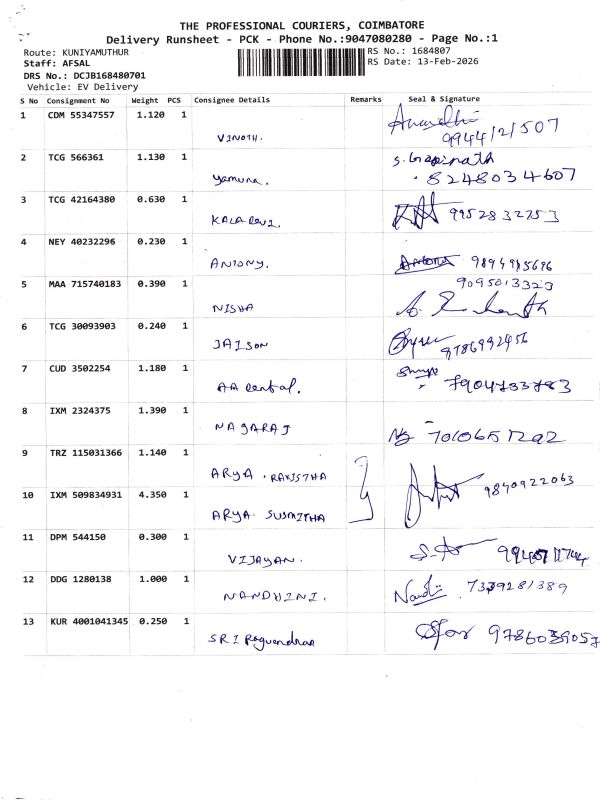 THE PROFESSIONAL COURIERS, COIMBATORE
Delivery Runsheet - PCK - Phone No.:9047080280 - Page No.:1
Route: KUNIYAMUTHUR RS No.: 1684807
Staff: AFSAL RS Date: 13-Feb-2026
DRS No.: DCJB168480701
Vehicle: EV Delivery
S No Consignment No Weight PCS Consignee Details Remarks Seal & Signature
1 CDM 55347557 1.120 1 VINOTH. 9944121507
2 TCG 566361 1.130 1 yamuna. 8248034607
3 TCG 42164380 0.630 1 KALA DEVI. 9952832753
4 NEY 40232296 0.230 1 ANTONY.
5 MAA 715740183 0.390 1 NISHA
6 TCG 30093903 0.240 1 JAISON
7 CUD 3502254 1.180 1 AA Dental. 7904733783
8 IXM 2324375 1.390 1 NAGARAJ
9 TRZ 115031366 1.140 1 ARYA . RAKISTHA
10 IXM 509834931 4.350 1 ARYA. SUSMITHA 9840922063
11 DPM 544150 0.300 1 VIJAYAN.
12 DDG 1280138 1.000 1 NANDHINI. 7339281389
13 KUR 4001041345 0.250 1 SRI 9786039057